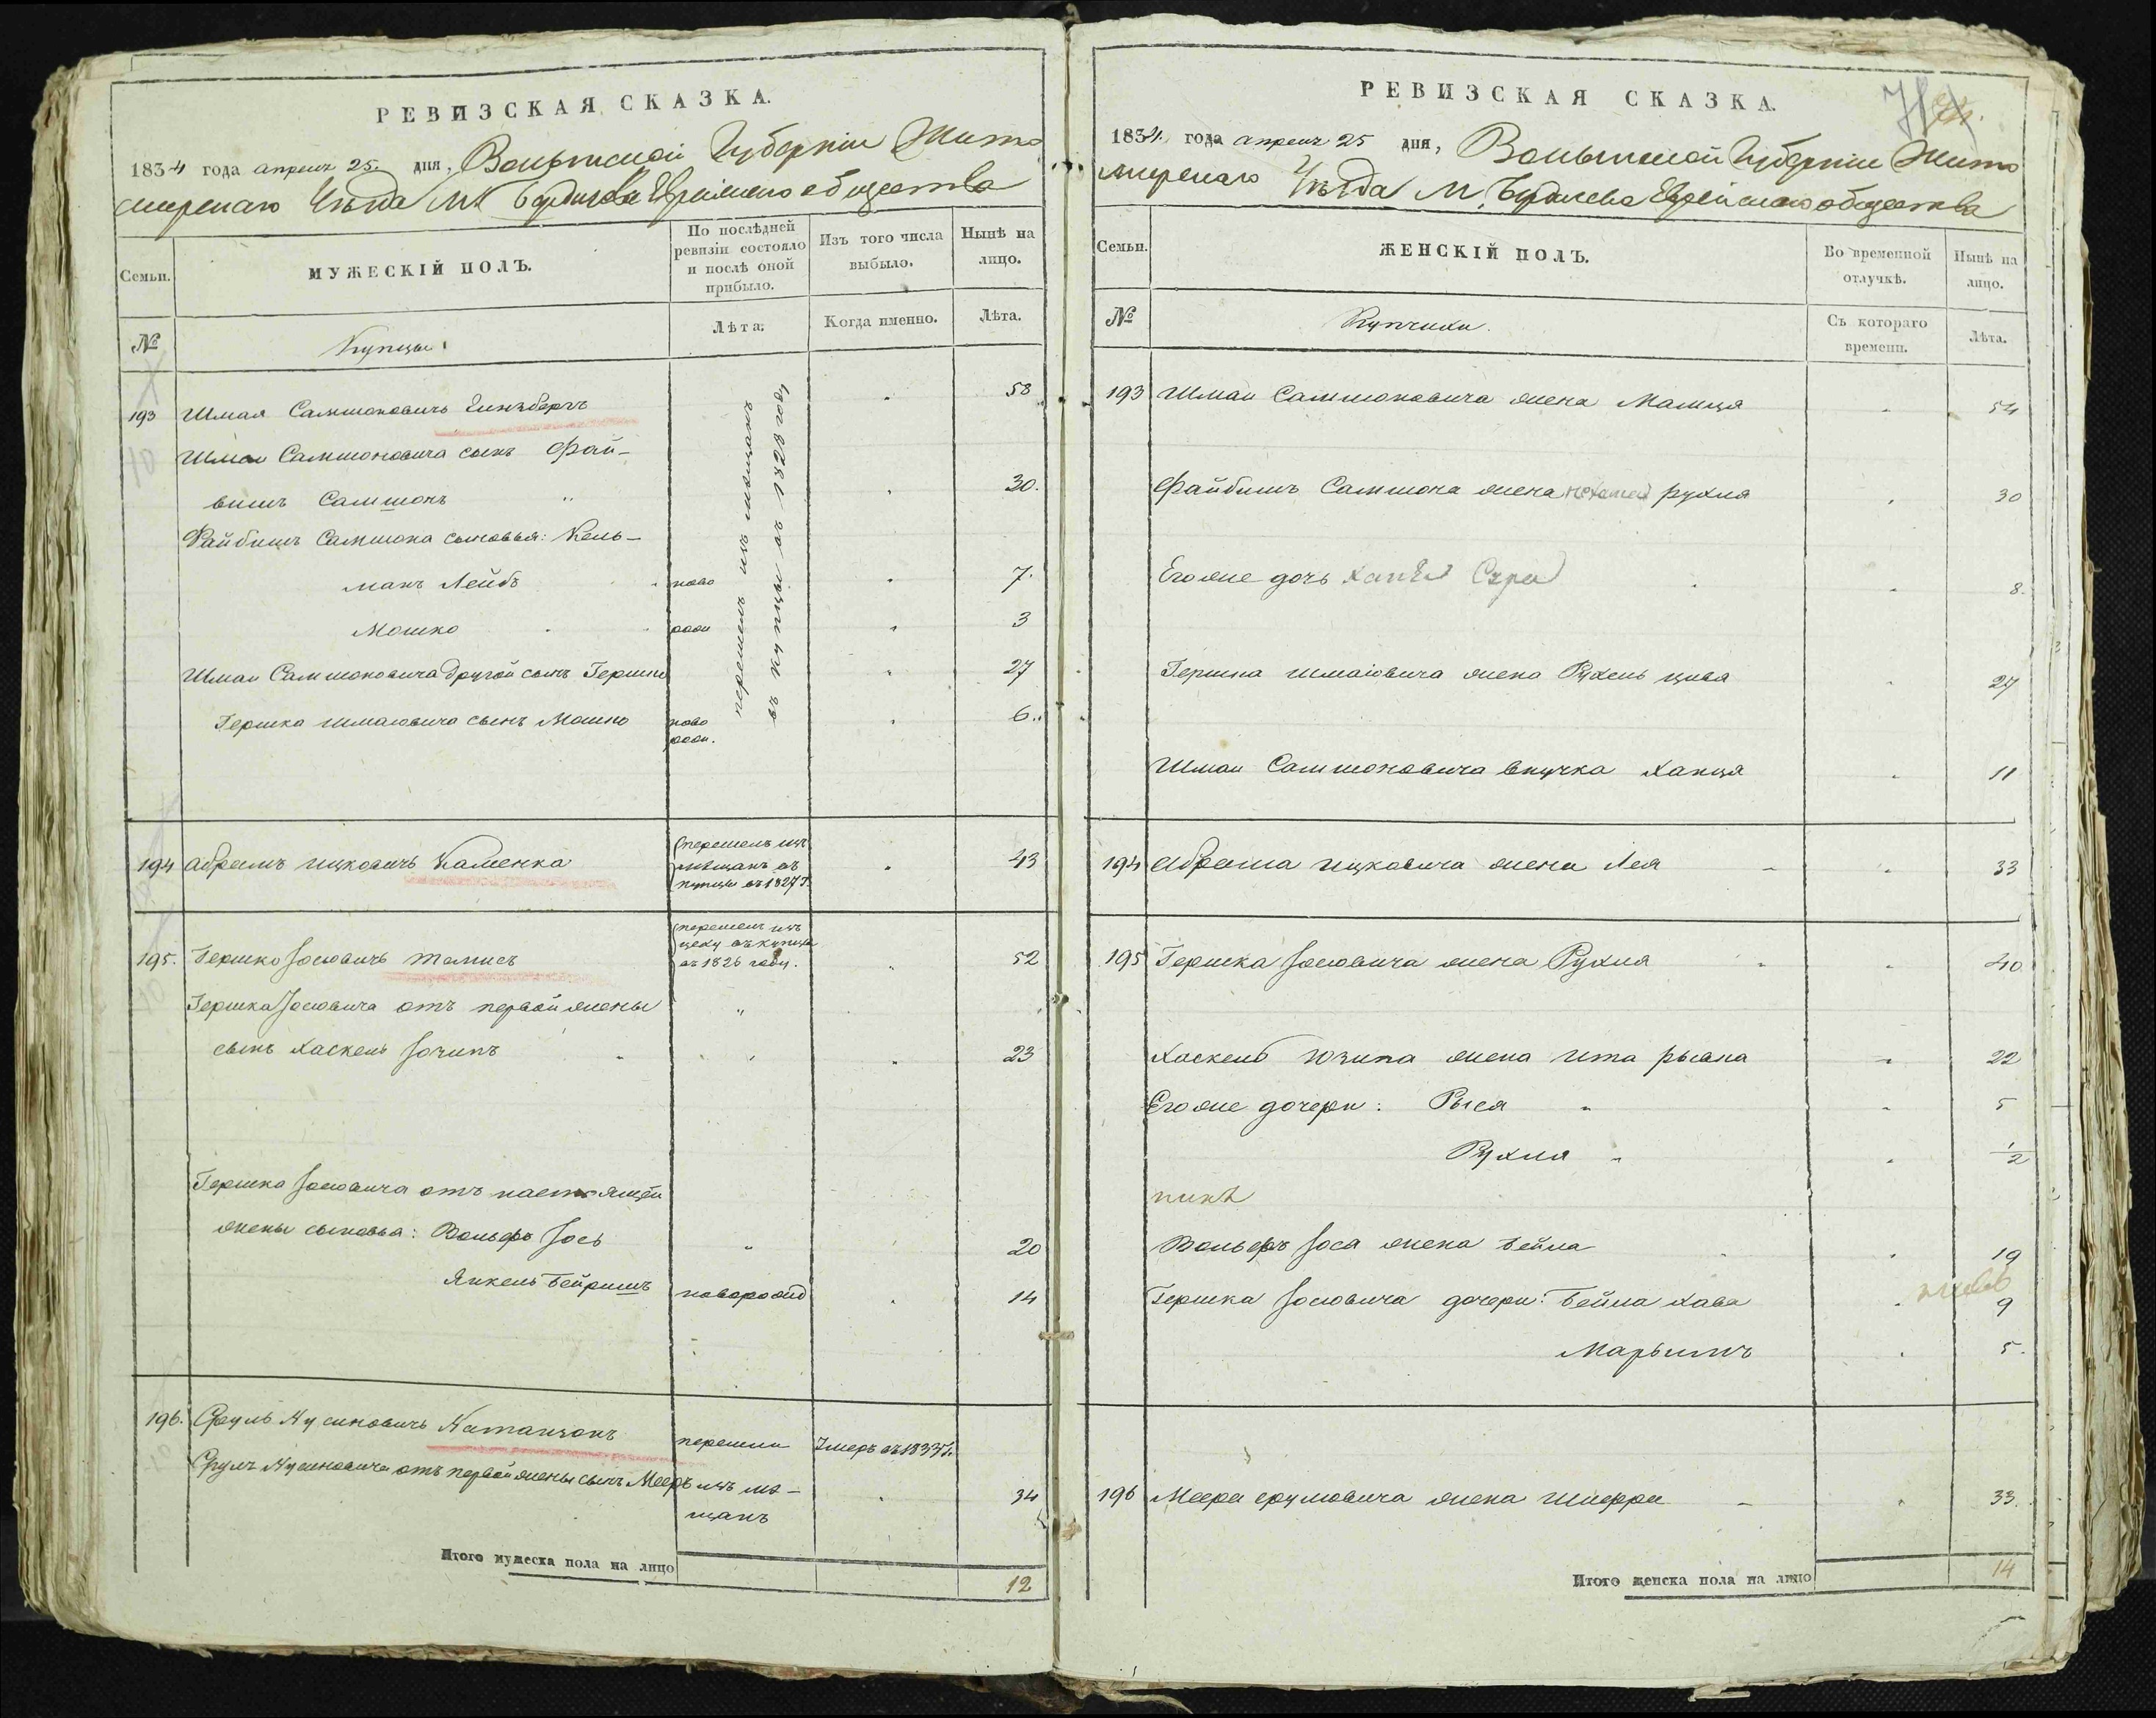 РЕВИЗСКАЯ СКАЗКА.
1834 года апреля 25. дня, Волынской Губернiи Жито
мирскаго Уѣзда М. Бердичева Еврейскаго общества
Семьи.
МУЖЕСКIЙ ПОЛЪ.
По послѣдней
ревизiи состояло
и послѣ оной
прибыло.
Изъ того числа
выбыло.
Нынѣ на
лицо.
№
Купцы
Лѣта.
Когда именно.
Лѣта.
193 Шмая Самшоновичъ Гинзбергъ 58
Шмаи Самшоновича сынъ Фай-
вишъ Самшонъ " 30.
перешелъ изъ мѣщанъ
въ купцы въ 1828 году
Файбишъ Самшона сыновья: Кель-
манъ Лейбъ ново 7.
Мошко рож 3
Шмаи Самшоновича другой сынъ Гершко 27
Гершка Шмаiовича сынъ Мошко ново 6.
рож.
194 Абрамъ Ицковичъ Каменка перешелъ изъ 43
мѣщанъ въ
купцы въ 1827 г.
195. Гершко Iосiовичъ перешелъ изъ 52
цеху въ купцы
въ 1826 году.
Гершка Iосiовича отъ первой жены "
сынъ Хаскель Iозипъ 23
Гершка Iосiовича отъ настоящей
жены сыновья: Вольфъ Iось 20
Янкель Бейришъ новорожд 14
196. Сруль Нусиновичъ Натанзонъ перешли Умеръ въ 1833 г.
Сруля Нусиновича отъ первой жены сынъ Мееръ изъ мѣ- 34
щанъ
Итого мужеска пола на лицо 12
РЕВИЗСКАЯ СКАЗКА.
1834. года апреля 25 дня, Волынской Губернiи Жито
мирскаго Уѣзда М. Бердичева Еврейскаго общества
Семьи.
ЖЕНСКIЙ ПОЛЪ.
Во временной
отлучкѣ.
Нынѣ на
лицо.
№
Купчихи.
Съ котораго
времени.
Лѣта.
193 Шмаи Самшоновича жена Малця 54
Файбишъ Самшона жена Рухля 30
Его же дочь Сура 8.
Гершка Шмаiовича жена Рухель Цива 27
Шмаи Самшоновича внучка Ханця 11
194 Абрама Ицковича жена Лея 33
195 Гершка Iосiовича жена Рухля 40
Хаскель Юзипа жена Ита Рысана 22
Его же дочери: Рыся 5
Рухля 1/2
Вольфъ Iоса жена Бейла 19
Гершка Iосiовича дочери: Бейла Хава 9
Марьимъ 5.
196 Меера Срулiовича жена Шифра 33.
Итого женска пола на лицо 14